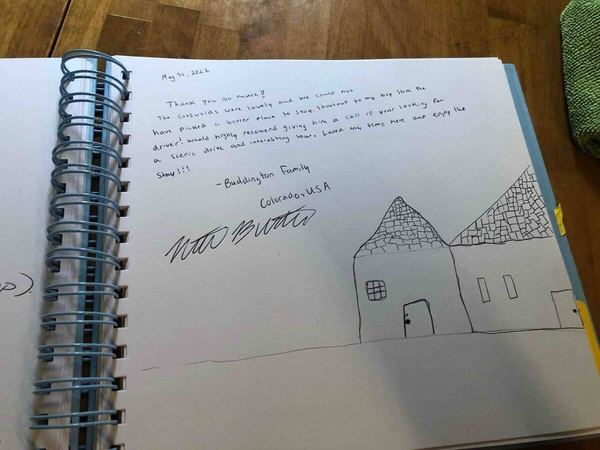 May 31, 2022
Thank you so much!
The Cotswolds were lovely and we could not
have picked a better place to stay. Shoutout to my boy the
driver! Would highly recomend giving him a call if your looking for
a scenic drive and interesting tour. Loved my time here and enjoy the
stay!!!
-Buddington Family
Colorado, USA